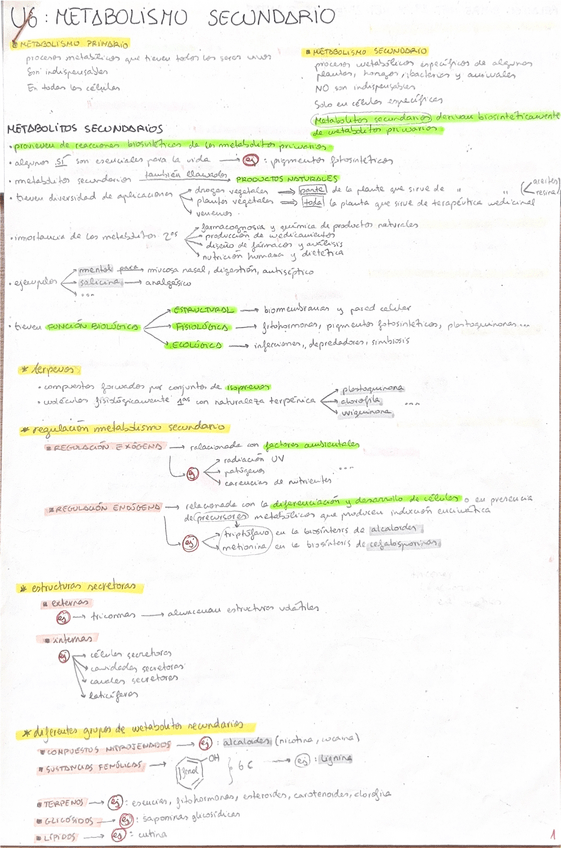 U6: METABOLISMO SECUNDARIO
* METABOLISMO PRIMARIO
procesos metabólicos que tienen todos los seres vivos
Son indispensables
En todas las células
* METABOLISMO SECUNDARIO
procesos metabólicos específicos de algunas
plantas, hongos, bacterias y animales
NO son indispensables
Solo en células específicas
Metabolitos secundarios derivan biosintéticamente
de metabolitos primarios
METABOLITOS SECUNDARIOS
• provienen de reacciones biosintéticas de los metabolitos primarios
• algunos SÍ son esenciales para la vida → ej: pigmentos fotosintéticos
• metabolitos secundarios también llamados → PRODUCTOS NATURALES
• tienen diversidad de aplicaciones
drogas vegetales ⇒ parte de la planta que sirve de " " (aceites
resinas
plantas vegetales ⇒ toda la planta que sirve de terapéutica medicinal
venenos
• importancia de los metabolitos 2os
farmacognosia y química de productos naturales
producción de medicamentos
diseño de fármacos y análisis
nutrición humana y dietética
• ejemplos
mentol para mucosa nasal, digestión, antiséptico
salicina → analgésico
...
• tienen FUNCIÓN BIOLÓGICA
ESTRUCTURAL → biomembranas y pared celular
FISIOLÓGICA → fitohormonas, pigmentos fotosintéticos, plastoquinonas...
ECOLÓGICA → infecciones, depredadores, simbiosis
* terpenos
• compuestos formados por conjuntos de isoprenos
• moléculas fisiológicamente 1as con naturaleza terpénica
plastoquinona
clorofila ....
ubiquinona
* regulación metabolismo secundario
* REGULACIÓN EXÓGENA → relacionada con factores ambientales
ej
radiación UV
patógenos ....
carencias de nutrientes
* REGULACIÓN ENDÓGENA → relacionada con la diferenciación y desarrollo de células o en presencia
de precursores metabólicos que producen inducción enzimática
ej
triptófano en la biosíntesis de alcaloides
metionina en la biosíntesis de cefalosporinas
* estructuras secretoras
* externas
ej → tricomas → almacenan estructuras volátiles
* internas
ej → células secretoras
cavidades secretoras
canales secretores
laticíferos
* diferentes grupos de metabolitos secundarios
* COMPUESTOS NITROGENADOS → ej: alcaloides (nicotina, cocaína)
* SUSTANCIAS FENÓLICAS → fenol OH } 6C → ej: lignina
* TERPENOS → ej: esencias, fitohormonas, esteroides, carotenoides, clorofila
* GLICÓSIDOS → ej: saponinas glicosídicas
* LÍPIDOS → ej: cutina
1